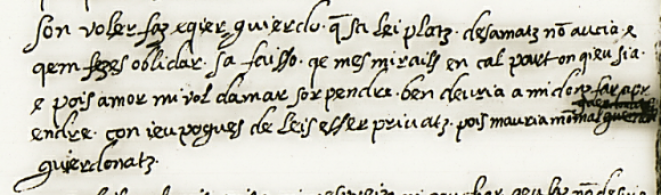 son voler faz eqier guierdo. q̃ sa lei platz. desamatz nõ aucia. e
qem fezes oblidar. sa faisso. qe mes miraill en cal part on qieu sia.
e pois amor mi vol damar sorpendre. ben deuria a midonz far apr
endre. con ieu pogues de leis esser priuatz. pois mauria mõ mal
guierdonatz.